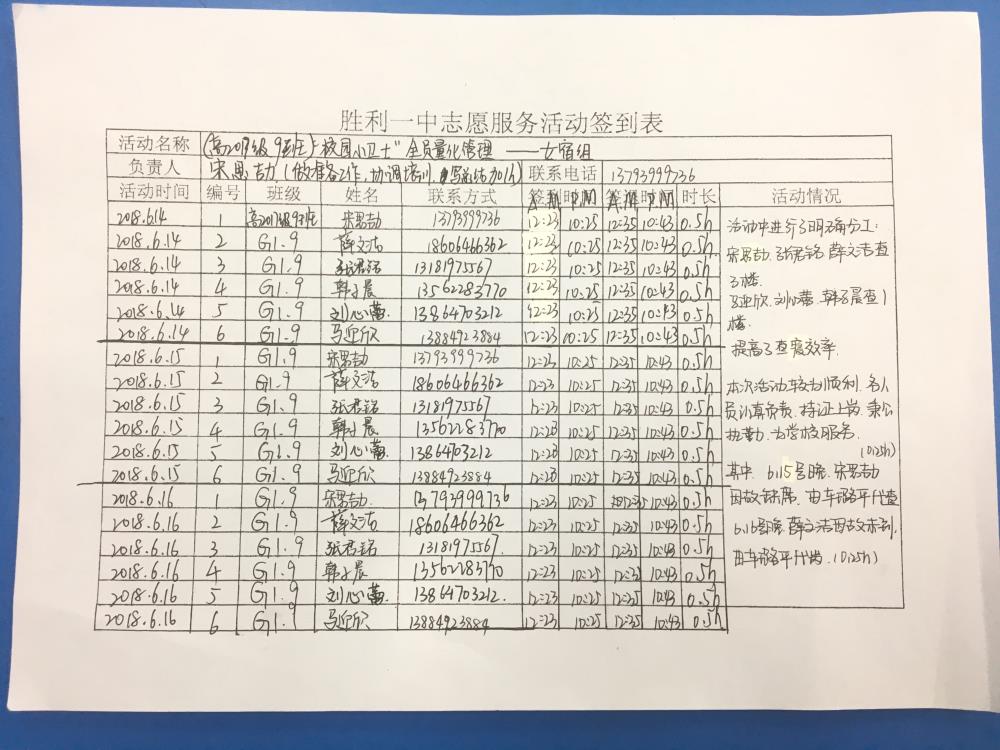 胜利一中志愿服务活动签到表
活动名称 (高2017级9班)"校园小卫士"全员量化管理 ——女宿组
负责人 宋思劼 (做准备工作,协调培训,写总结加1h) 联系电话 13793999736
活动时间 编号 班级 姓名 联系方式 签到时间 签退时间 时长 活动情况
2018.6.14 1 高2017级9班 宋思劼 13793999736 12:23 10:25 12:35 10:43 0.5h
2018.6.14 2 G1.9 薛文洁 18606466362 12:23 10:25 12:35 10:43 0.5h
2018.6.14 3 G1.9 张君铭 13181975567 12:23 10:25 12:35 10:43 0.5h
2018.6.14 4 G1.9 韩子晨 13562283770 12:23 10:25 12:35 10:43 0.5h
2018.6.14 5 G1.9 刘心蕾 13864703212 12:23 10:25 12:35 10:43 0.5h
2018.6.14 6 G1.9 马迎欣 13884923884 12:23 10:25 12:35 10:43 0.5h
2018.6.15 1 G1.9 宋思劼 13793999736 12:23 10:25 12:35 10:43 0.5h
2018.6.15 2 G1.9 薛文洁 18606466362 12:23 10:25 12:35 10:43 0.5h
2018.6.15 3 G1.9 张君铭 13181975567 12:23 10:25 12:35 10:43 0.5h
2018.6.15 4 G1.9 韩子晨 13562283770 12:23 10:25 12:35 10:43 0.5h
2018.6.15 5 G1.9 刘心蕾 13864703212 12:23 10:25 12:35 10:43 0.5h
2018.6.15 6 G1.9 马迎欣 13884923884 12:23 10:25 12:35 10:43 0.5h
2018.6.16 1 G1.9 宋思劼. 13793999736 12:23 10:25 12:35 10:43 0.5h
2018.6.16 2 G1.9 薛文洁 18606466362 12:23 10:25 12:35 10:43 0.5h
2018.6.16 3 G1.9 张君铭 13181975567. 12:23 10:25 12:35 10:43 0.5h
2018.6.16 4 G1.9 韩子晨 13562283770 12:23 10:25 12:35 10:43 0.5h
2018.6.16 5 G1.9 刘心蕾 13864703212. 12:23 10:25 12:35 10:43 0.5h
2018.6.16 6 G1.9 马迎欣 13884923884 12:23 10:25 12:35 10:43 0.5h
活动中进行了明确分工:
宋思劼.张君铭 薛文洁查
3楼
马迎欣.刘心蕾.韩子晨查1
楼.
提高了查寝效率.
本次活动较为顺利.各人
员认真负责.持证上岗.秉公
执勤.为学校服务.
(0.25h)
其中.6.15号晚.宋思劼
因故缺席.由车璐平代查
6.16号晚 薛文洁因故未到.
由车璐平代岗.(0.25h)